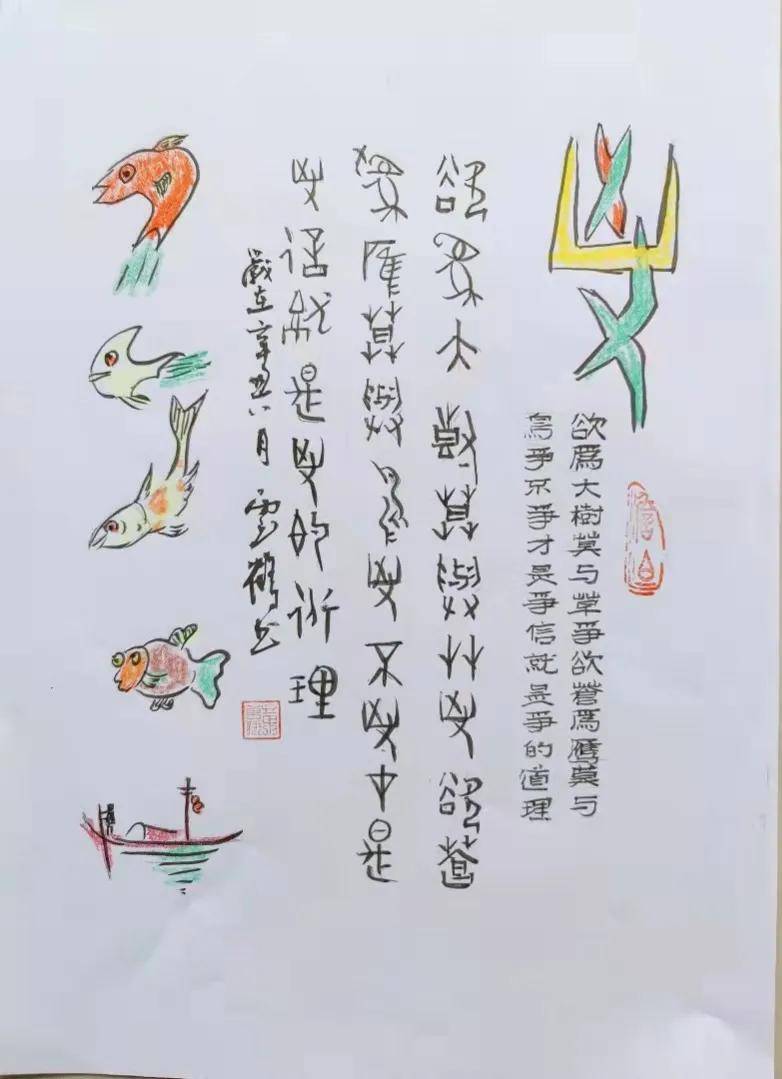 欲爲大樹莫与草爭欲蒼爲鷹莫与
鳥爭不爭才是爭信就是爭的道理
欲爲大樹莫與艸爭欲蒼
爲鷹莫與鳥爭不爭才是
爭信就是爭的道理
歲在辛丑八月雲鶴書